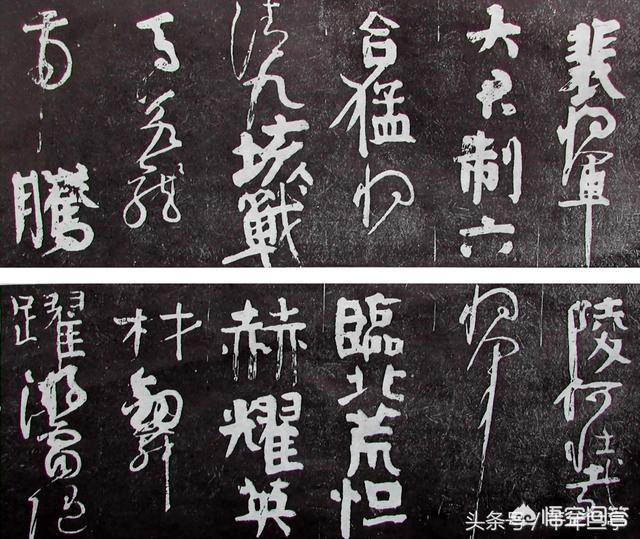 裴將軍
大君制六
合猛將
清九垓戰
馬若龍
虎騰
陵何壯哉
將軍
臨北荒恒
赫耀英
材劍舞
躍游電隨
头条号
悟空问答